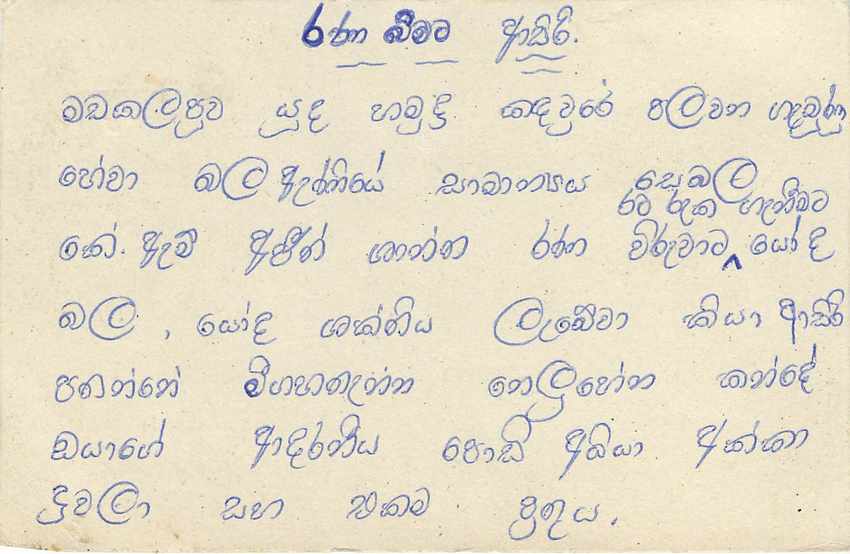 රණ බිමට ආසිරි.
මඩකලපුව යුද හමුදු කඳවුරේ පලවන ගැමුණු
හේවා බල ඇණියේ සාමාන්‍යය සෙබල
රට රැක ගැනීමට
කේ. ඇම් අජිත් ශාන්ත රණ විරුවාට යෝද
බල , යෝද ශක්තිය ලැබේවා කියා ආසිරි
පතන්නේ මීගහතැන්න නෙලුහේන කන්දේ
ඔයාගේ ආදරනීය පොඩි අයියා අක්කා
දුවලා සහ එකම පුතුය.